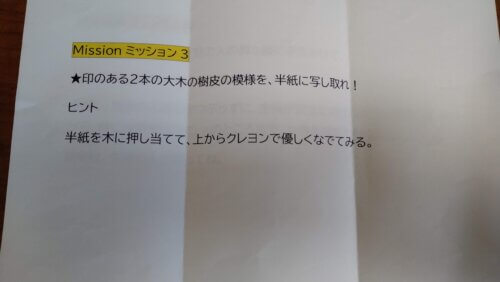 Mission ミッション 3
★印のある2本の大木の樹皮の模様を、半紙に写し取れ!
ヒント
半紙を木に押し当てて、上からクレヨンで優しくなでてみる。